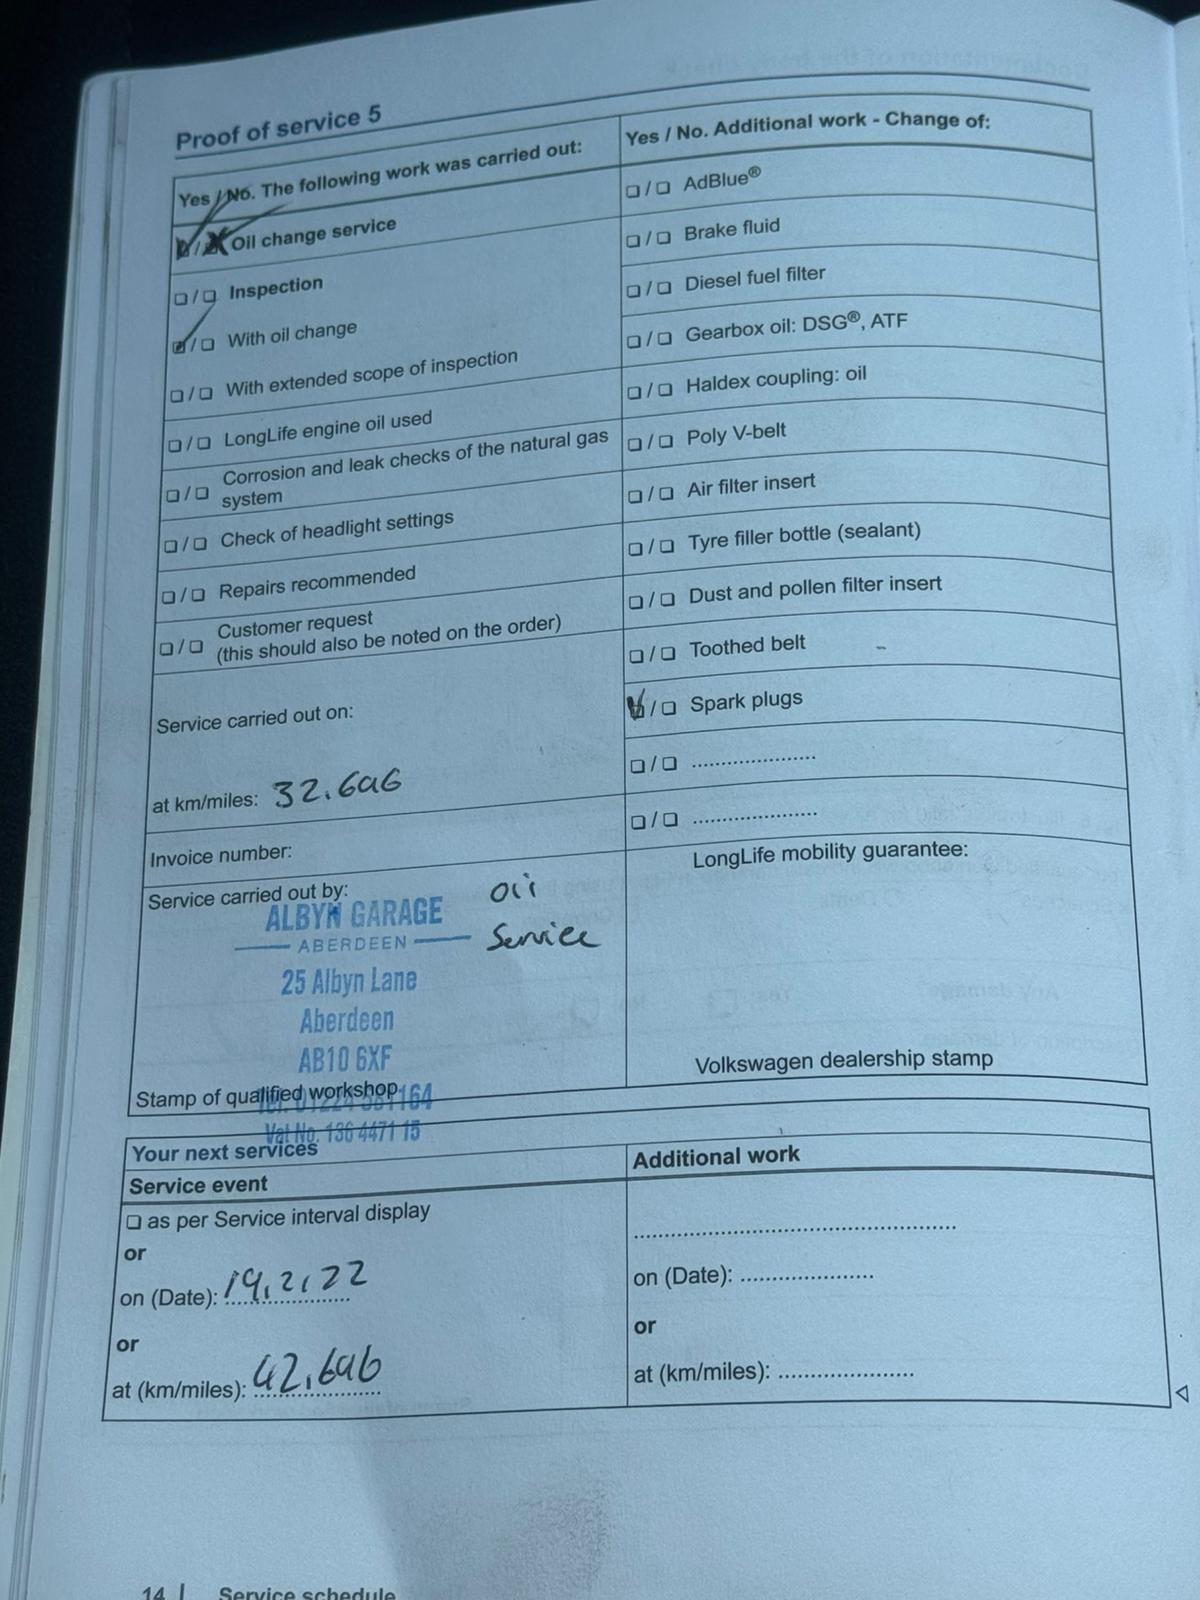 Proof of service 5
Yes / No. The following work was carried out:
❏ / ❏ Oil change service
❏ / ❏ Inspection
❏ / ❏ With oil change
❏ / ❏ With extended scope of inspection
❏ / ❏ LongLife engine oil used
❏ / ❏ Corrosion and leak checks of the natural gas
system
❏ / ❏ Check of headlight settings
❏ / ❏ Repairs recommended
❏ / ❏ Customer request
(this should also be noted on the order)
Service carried out on:
at km/miles: 32.696
Invoice number:
Service carried out by:
ALBYN GARAGE
ABERDEEN
25 Albyn Lane
Aberdeen
AB10 6XF
Oil
Service
Stamp of qualified workshop
Vat No. 136 4471 15
Yes / No. Additional work - Change of:
❏ / ❏ AdBlue®
❏ / ❏ Brake fluid
❏ / ❏ Diesel fuel filter
❏ / ❏ Gearbox oil: DSG®, ATF
❏ / ❏ Haldex coupling: oil
❏ / ❏ Poly V-belt
❏ / ❏ Air filter insert
❏ / ❏ Tyre filler bottle (sealant)
❏ / ❏ Dust and pollen filter insert
❏ / ❏ Toothed belt
❏ / ❏ Spark plugs
❏ / ❏ .....................
❏ / ❏ .....................
LongLife mobility guarantee:
Volkswagen dealership stamp
Your next services
Service event
❏ as per Service interval display
or
on (Date): 19.2.22
or
at (km/miles): 42.696
Additional work
on (Date): ......................
or
at (km/miles): ......................
14 | Service schedule